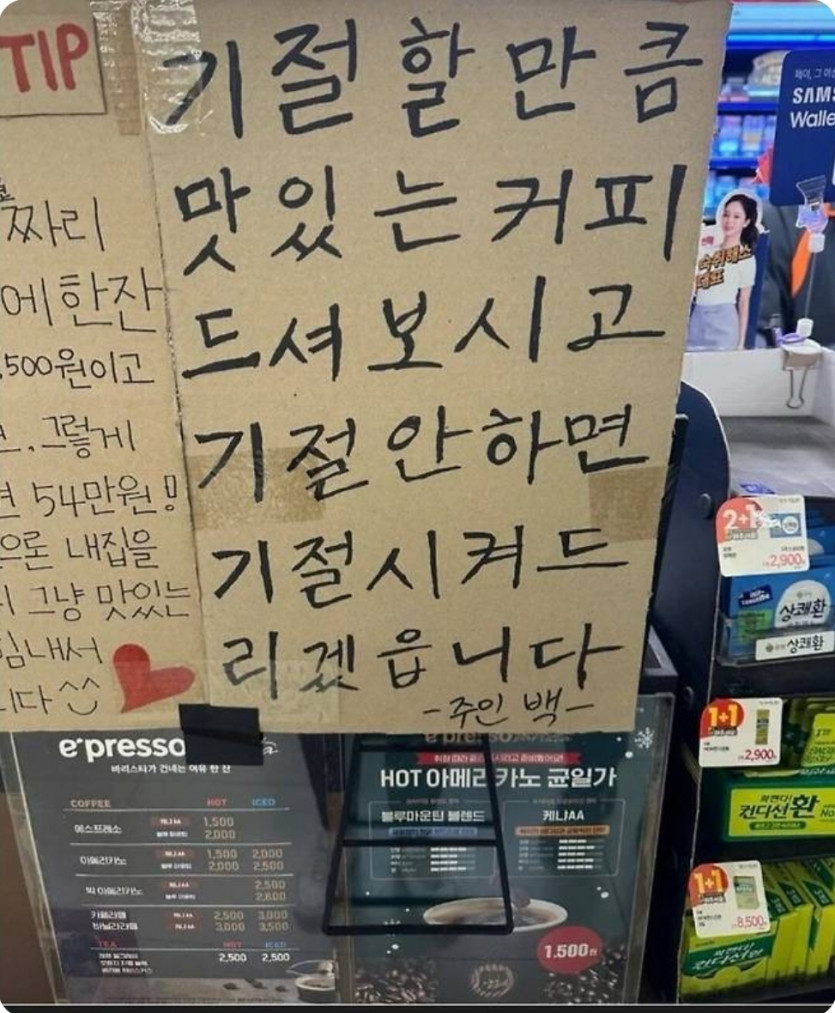 TIP
짜리
에 한잔
500원이고
그렇게
54만원!
으론 내집을
그냥 맛있는
힘내서
니다 ^^
기절할만큼
맛있는 커피
드셔보시고
기절 안하면
기절시켜드
리겠읍니다
-주인 백-
SAMS
Walle
2+1
2,900
상쾌환
상쾌환
1+1
2,900
컨디션환
1+1
8,500
e'presso
바리스타가 건네는 여유 한 잔
COFFEE HOT ICED
에스프레소 케냐AA 1,500
2,000
아메리카노 케냐AA 1,500 2,000
2,000 2,500
빅 아메리카노 케냐AA 2,500
2,600
카페라떼 케냐AA 2,500 3,000
바닐라라떼 케냐AA 3,000 3,500
TEA HOT ICED
2,500 2,500
HOT 아메리카노 균일가
블루마운틴 블렌드 케냐AA
1,500원